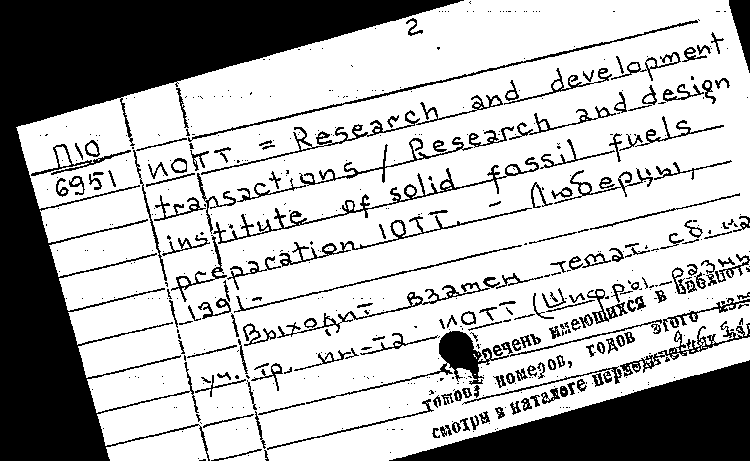 2
П10
6951
ИОТТ. = Research and development
transactions / Research and design
institute of solid fossil fuels,
preparation. IOTT. - Люберцы,
1991-
Выходит взамен темат. сб. на
уч. тр. ин-та ИОТТ (Шифры разны
Перечень имеющихся в библиоте
томов, номеров, годов этого изд
смотри в каталоге периодических